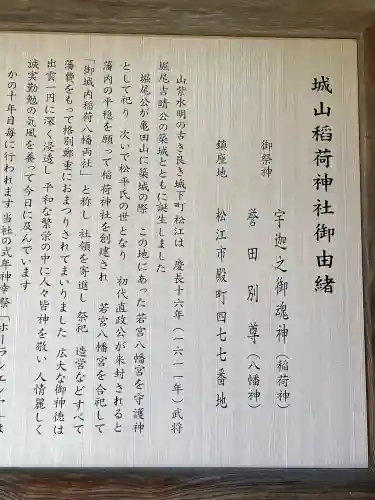 城山稲荷神社御由緒
御祭神 宇迦之御魂神(稲荷神)
誉田別尊(八幡神)
鎮座地 松江市殿町四七七番地
山紫水明の古き良き城下町松江は 慶長十六年(一六一一年)武将
堀尾吉晴公の築城とともに誕生しました
堀尾公が亀田山に築城の際 この地にあった若宮八幡宮を守護神
として祀り 次いで松平氏の世となり 初代直政公が来封されると
藩内の平穏を願って稲荷神社を創建され 若宮八幡宮を合祀して
「御城内稲荷八幡両社」と称し 社領を寄進し 祭祀 造営などすべて
藩費をもって格別鄭重におまつりされてまいりました 広大な御神徳は
出雲一円に深く浸透し 平和な繁栄の中に人々皆神を敬い 人情麗しく
誠実勤勉の気風を養って今日に及んでいます
かの十年目毎に行われます当社の式年神幸祭「ホーランエンヤ」は